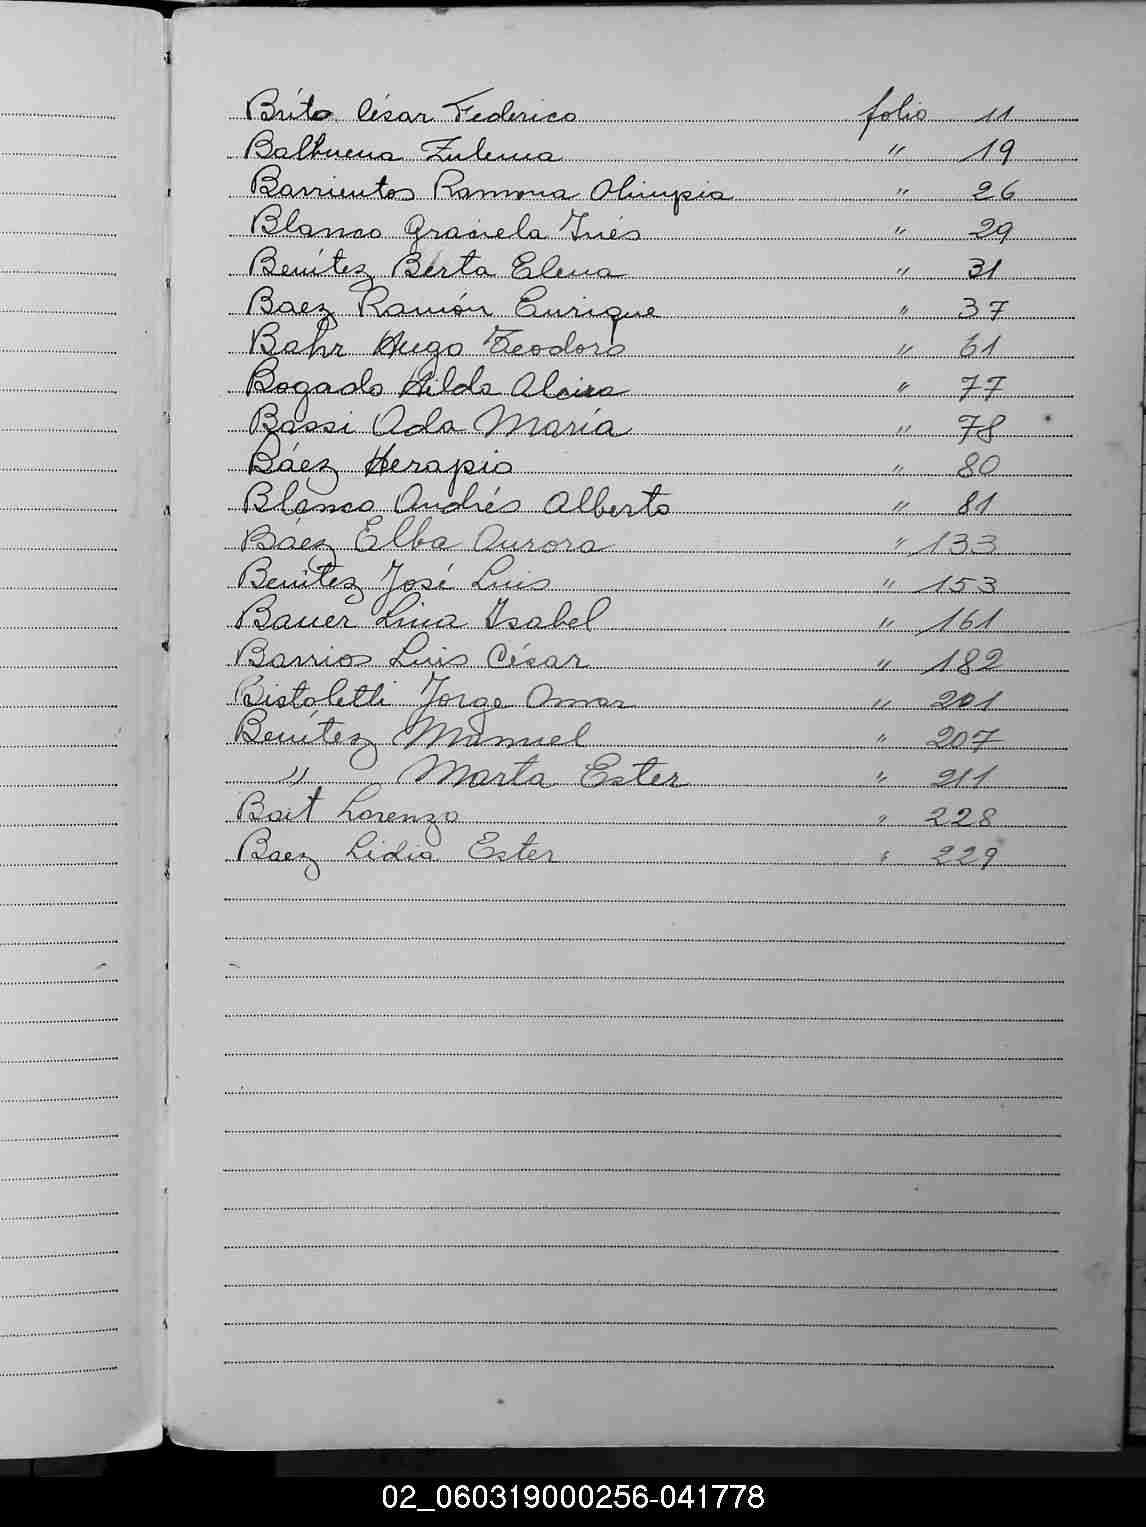 Brito César Federico folio 11
Balbuena Zulema " 19
Barrientos Ramona Olimpia " 26
Blanco Graciela Inés " 29
Benítez Berta Elena " 31
Baez Ramón Enrique " 37
Bahr Hugo Teodoro " 61
Bogado Hilda Alcira " 77
Bassi Ada María " 78
Báez Herapio " 80
Blanco Andrés Alberto " 81
Báez Elba Aurora " 133
Benítez José Luis " 153
Bauer Lina Isabel " 161
Barrios Luis César " 182
Bistoletti Jorge Omar " 201
Benítez Manuel " 207
" Marta Ester " 211
Bait Lorenzo " 228
Baez Lidia Ester " 229
02_060319000256-041778